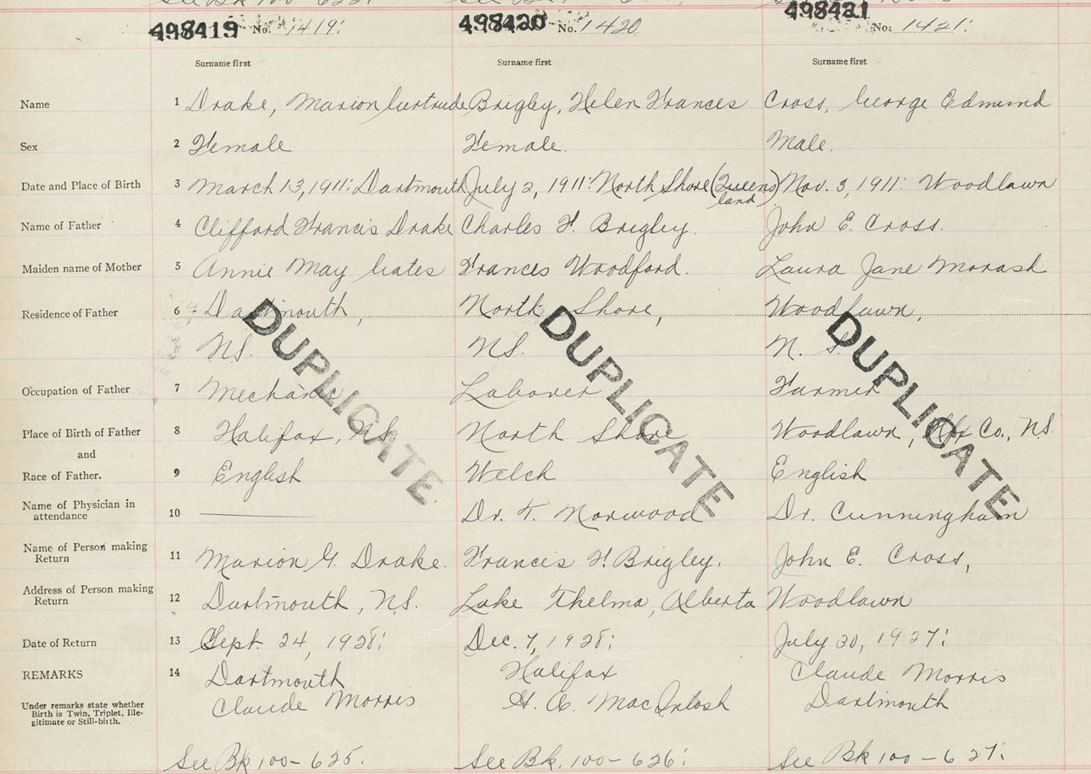 498419 No. 1419: 498420 No. 1420 498421 No. 1421:
Surname first Surname first Surname first
Name 1 Drake, Marion Gertrude Brigley, Helen Frances Cross, George Edmund
Sex 2 Female Female. Male.
Date and Place of Birth 3 March 13, 1911: Dartmouth July 2, 1911: North Shore (Queensland) Nov. 3, 1911: Woodlawn
Name of Father 4 Clifford Francis Drake Charles F. Brigley. John E. Cross.
Maiden name of Mother 5 Annie May Gates Frances Woodford. Laura Jane Morash
Residence of Father 6 Dartmouth, North Shore, Woodlawn,
NS. NS. N. S.
Occupation of Father 7 Mechanic Laborer Farmer
Place of Birth of Father 8 Halifax, NS North Shore Woodlawn, Hfx Co., NS
and
Race of Father. 9 English Welch English
Name of Physician in
attendance 10 Dr. F. Norwood Dr. Cunningham
Name of Person making
Return 11 Marion G. Drake. Francis F. Brigley. John E. Cross,
Address of Person making
Return 12 Dartmouth, N.S. Lake Thelma, Alberta Woodlawn
Date of Return 13 Sept. 24, 1928: Dec. 7, 1928: July 30, 1927:
REMARKS 14 Dartmouth Halifax Claude Morris
Claude Morris MacIntosh Dartmouth
Under remarks state whether
Birth is Twin, Triplet, Ille-
gitimate or Still-birth.
See Bk 100-625. See Bk. 100-626: See Bk 100-627:
DUPLICATE DUPLICATE DUPLICATE